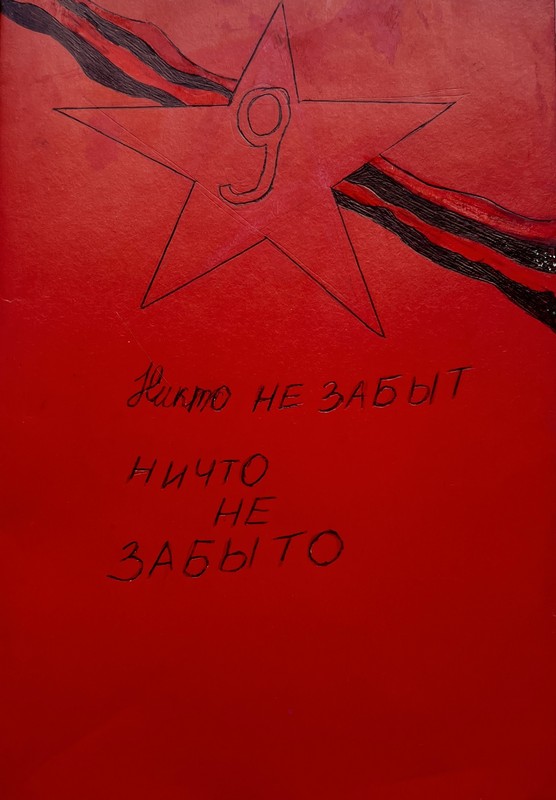 9
Никто НЕ ЗАБЫТ
НИЧТО
НЕ
ЗАБЫТО